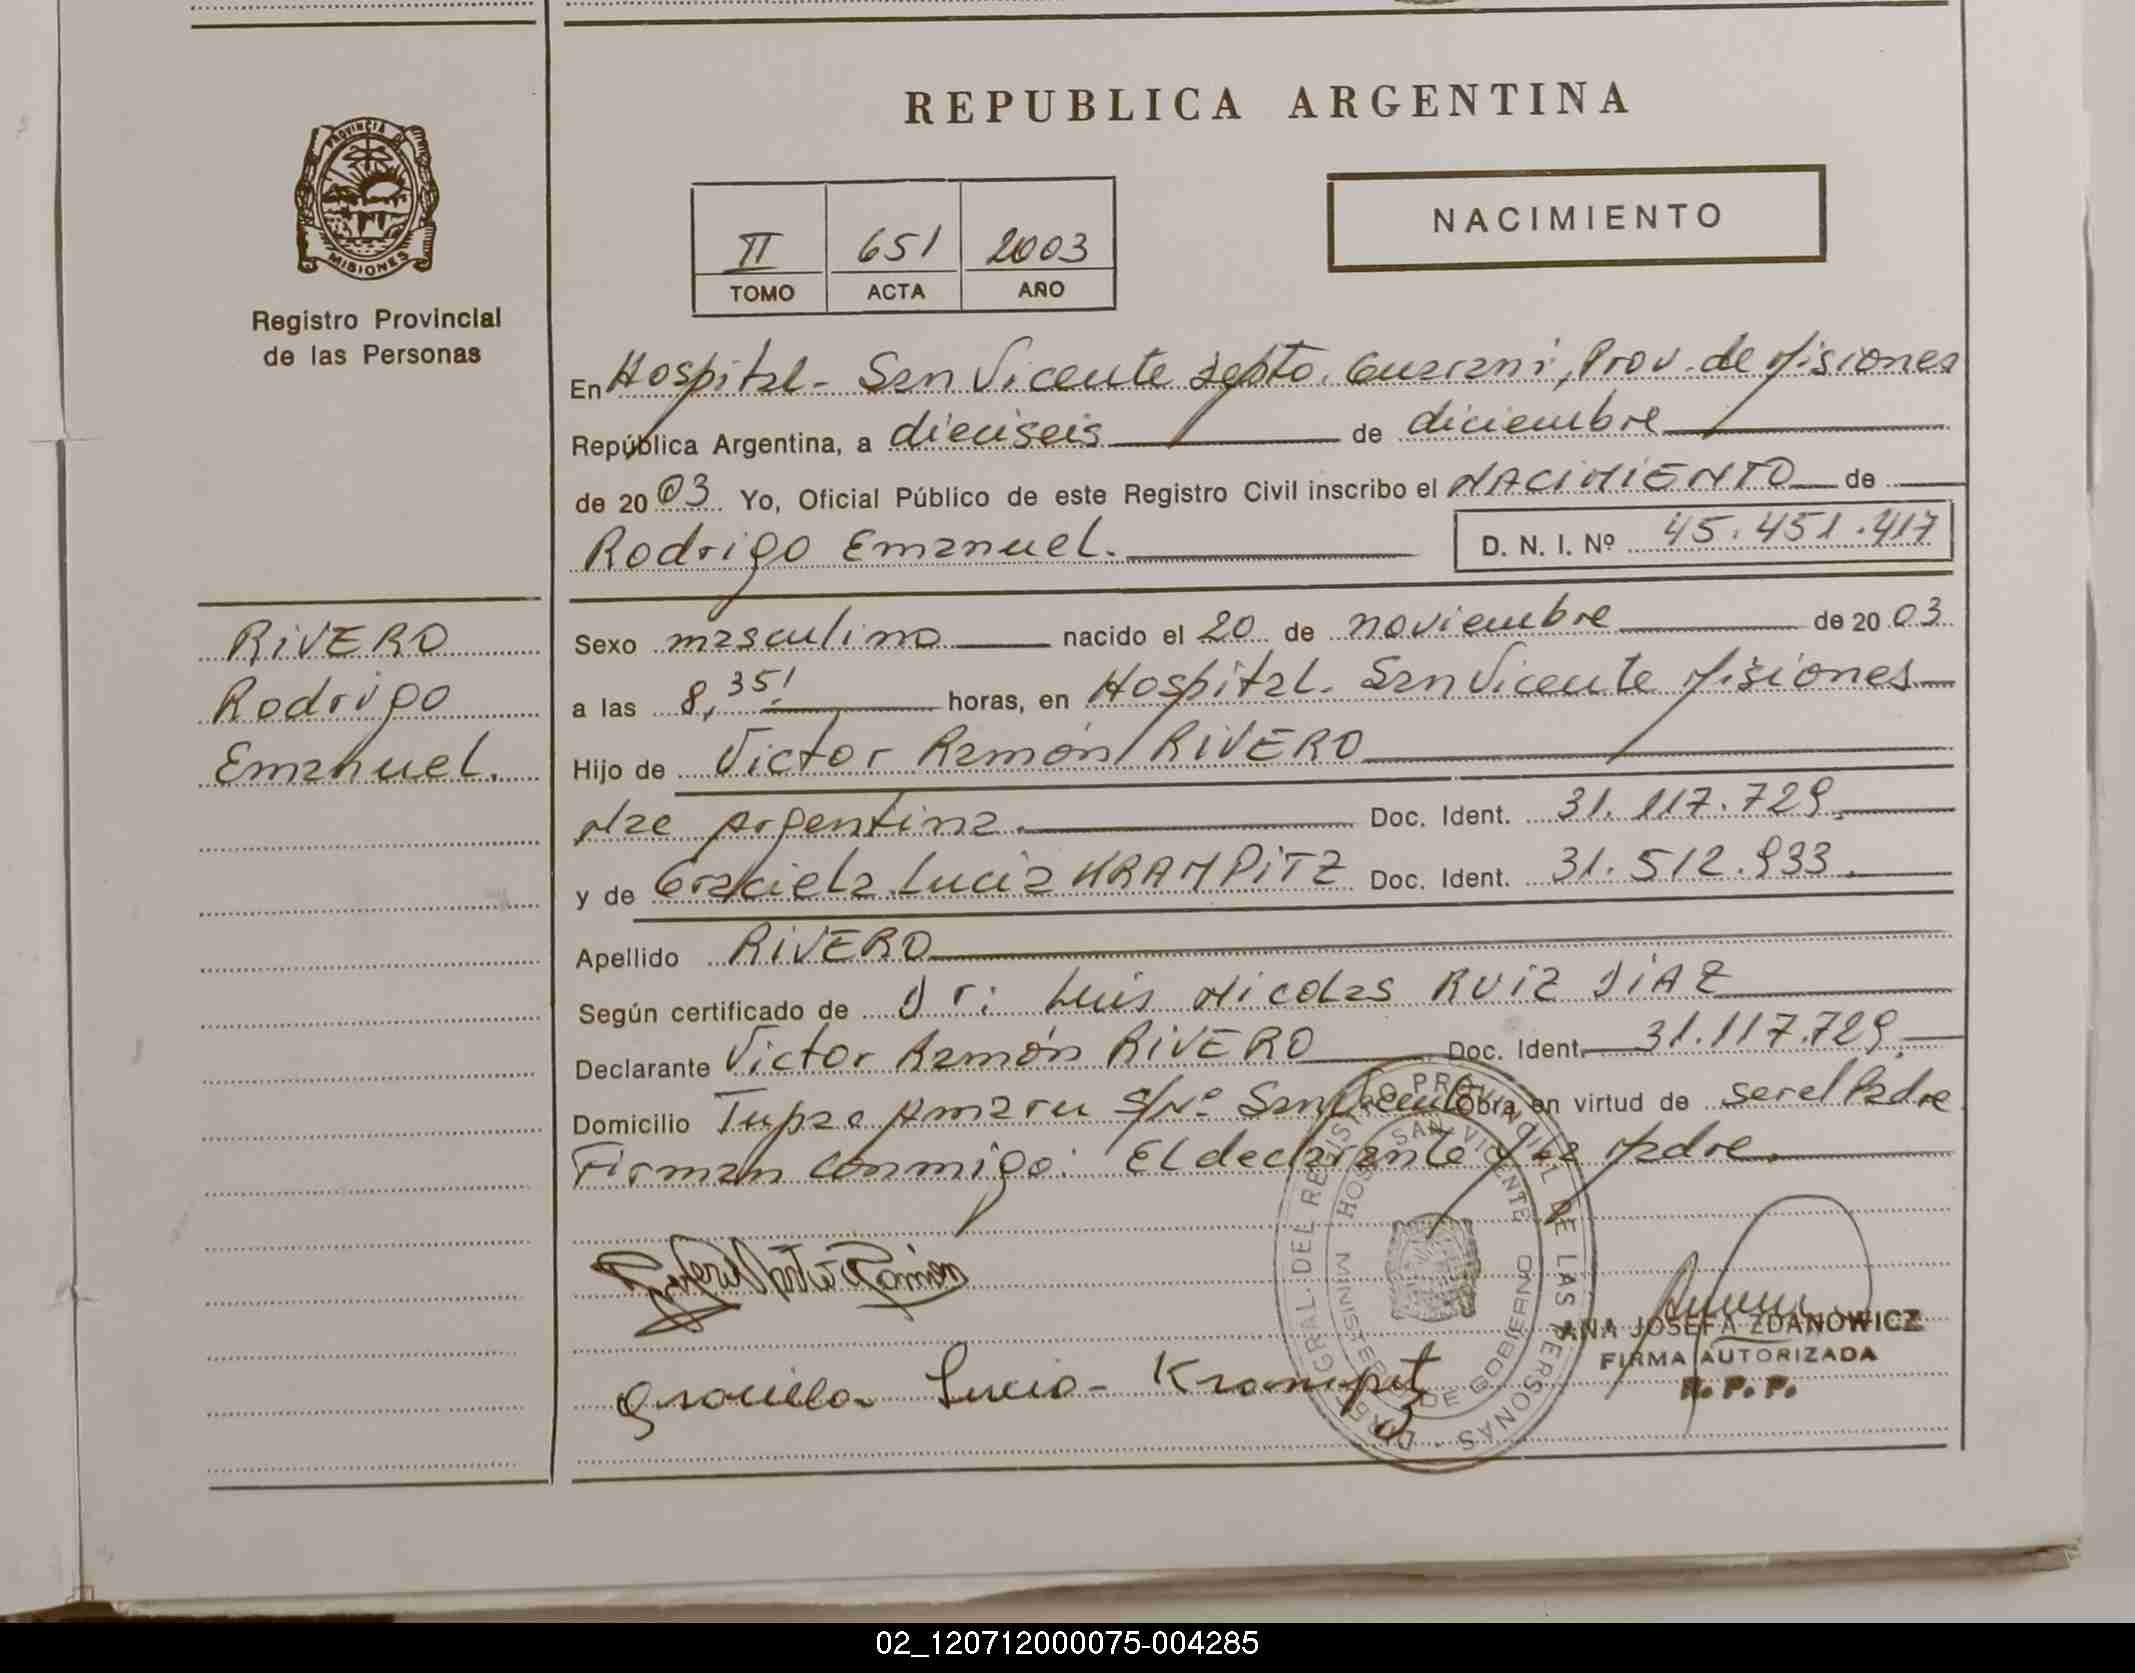 REPUBLICA ARGENTINA
PROVINCIA DE MISIONES
Registro Provincial
de las Personas
II 651 2003
TOMO ACTA AÑO
NACIMIENTO
En Hospital - San Vicente Depto. Guarani, Prov. de Misiones
República Argentina, a dieciseis de diciembre
de 20 03 Yo, Oficial Público de este Registro Civil inscribo el NACIMIENTO de
Rodrigo Emanuel. D. N. I. Nº 45.451.417
RIVERO
Rodrigo
Emanuel.
Sexo masculino nacido el 20 de noviembre de 20 03
a las 8,35! horas, en Hospital. San Vicente Misiones
Hijo de Victor Ramón RIVERO
Nac Argentina. Doc. Ident. 31.117.729.
y de Graciela Lucia KRAMPITZ Doc. Ident. 31.512.933.
Apellido RIVERO
Según certificado de Dr: Luis Nicolas RUIZ DIAZ
Declarante Victor Ramón RIVERO Doc. Ident. 31.117.729.
Domicilio Tupac Amaru S/Nº San Vicente Obra en virtud de ser el Padre
Firman conmigo: El declarante y La Madre.
DIREC. GRAL. DEL REGISTRO PROVINCIAL DE LAS PERSONAS
HOSP. SAN VICENTE
MINISTERIO DE GOBIERNO
Rivero Victor Ramón
ANA JOSEFA ZDANOWICZ
FIRMA AUTORIZADA
R. P. P.
Graciela Lucia - Krampitz
02_120712000075-004285